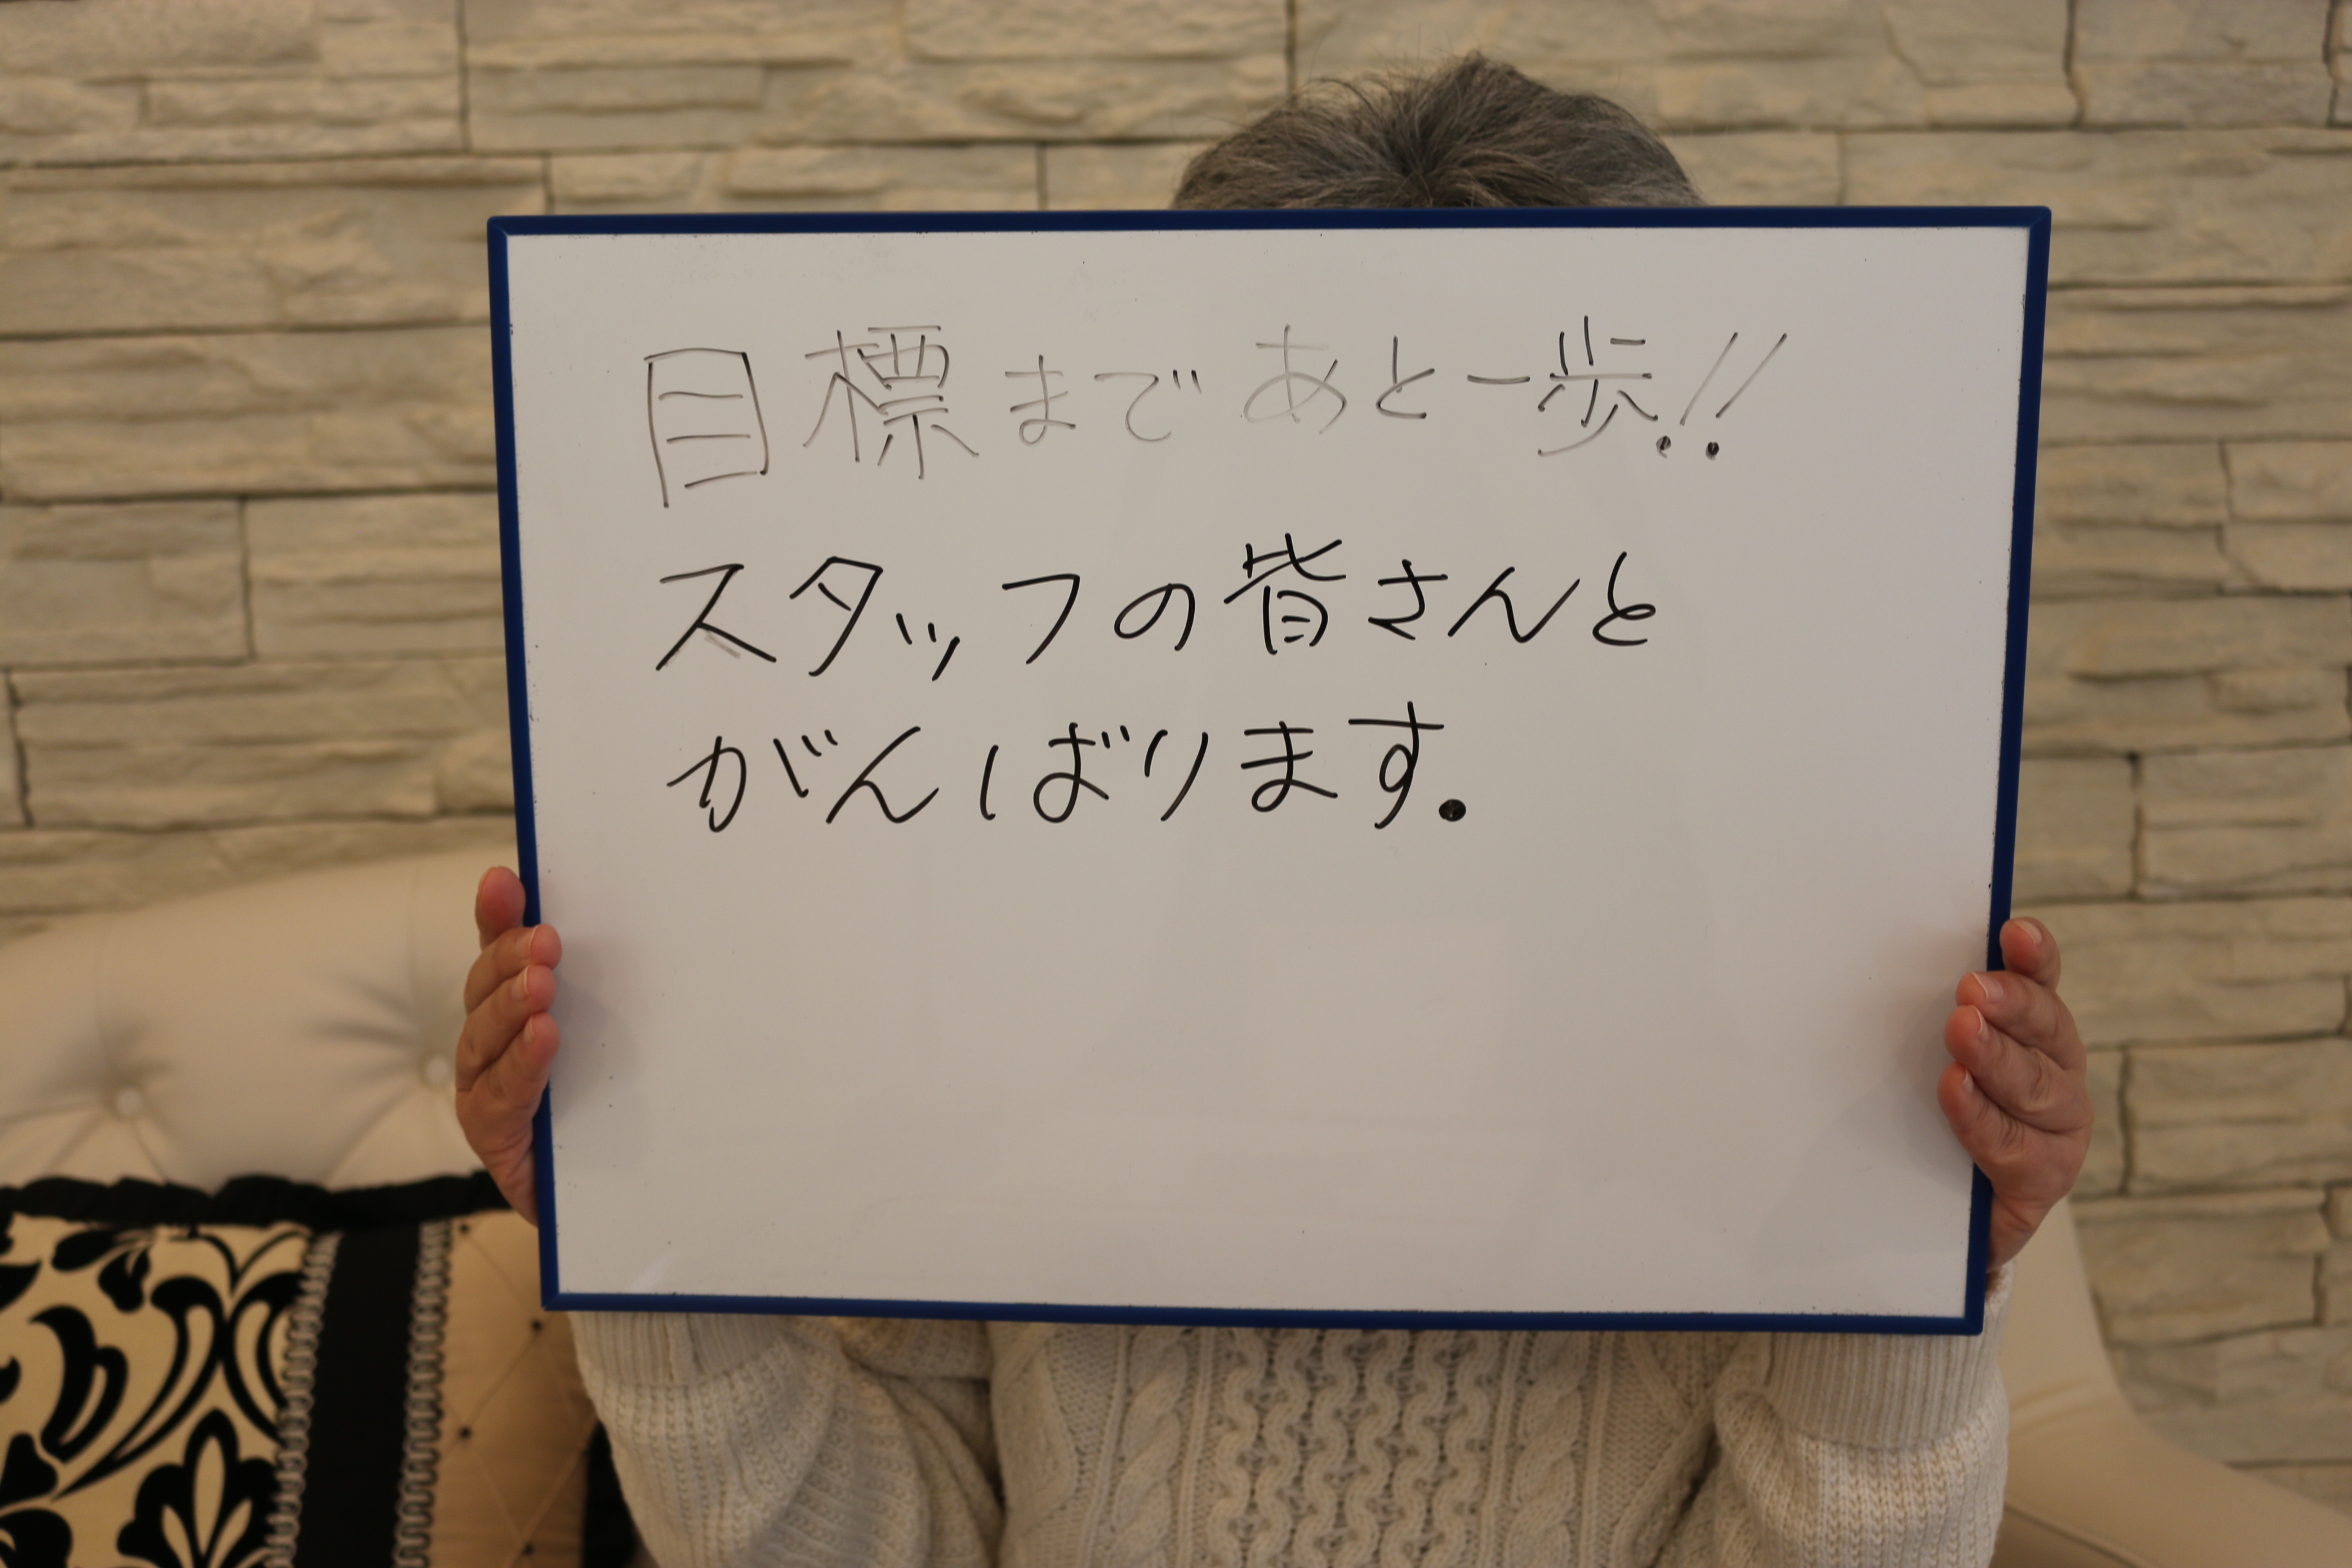 目標まであと一歩!!
スタッフの皆さんと
がんばります.